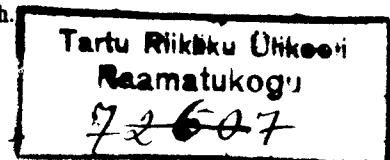 h.
Tartu Riikliku Ülikooli
Raamatukogu
72607